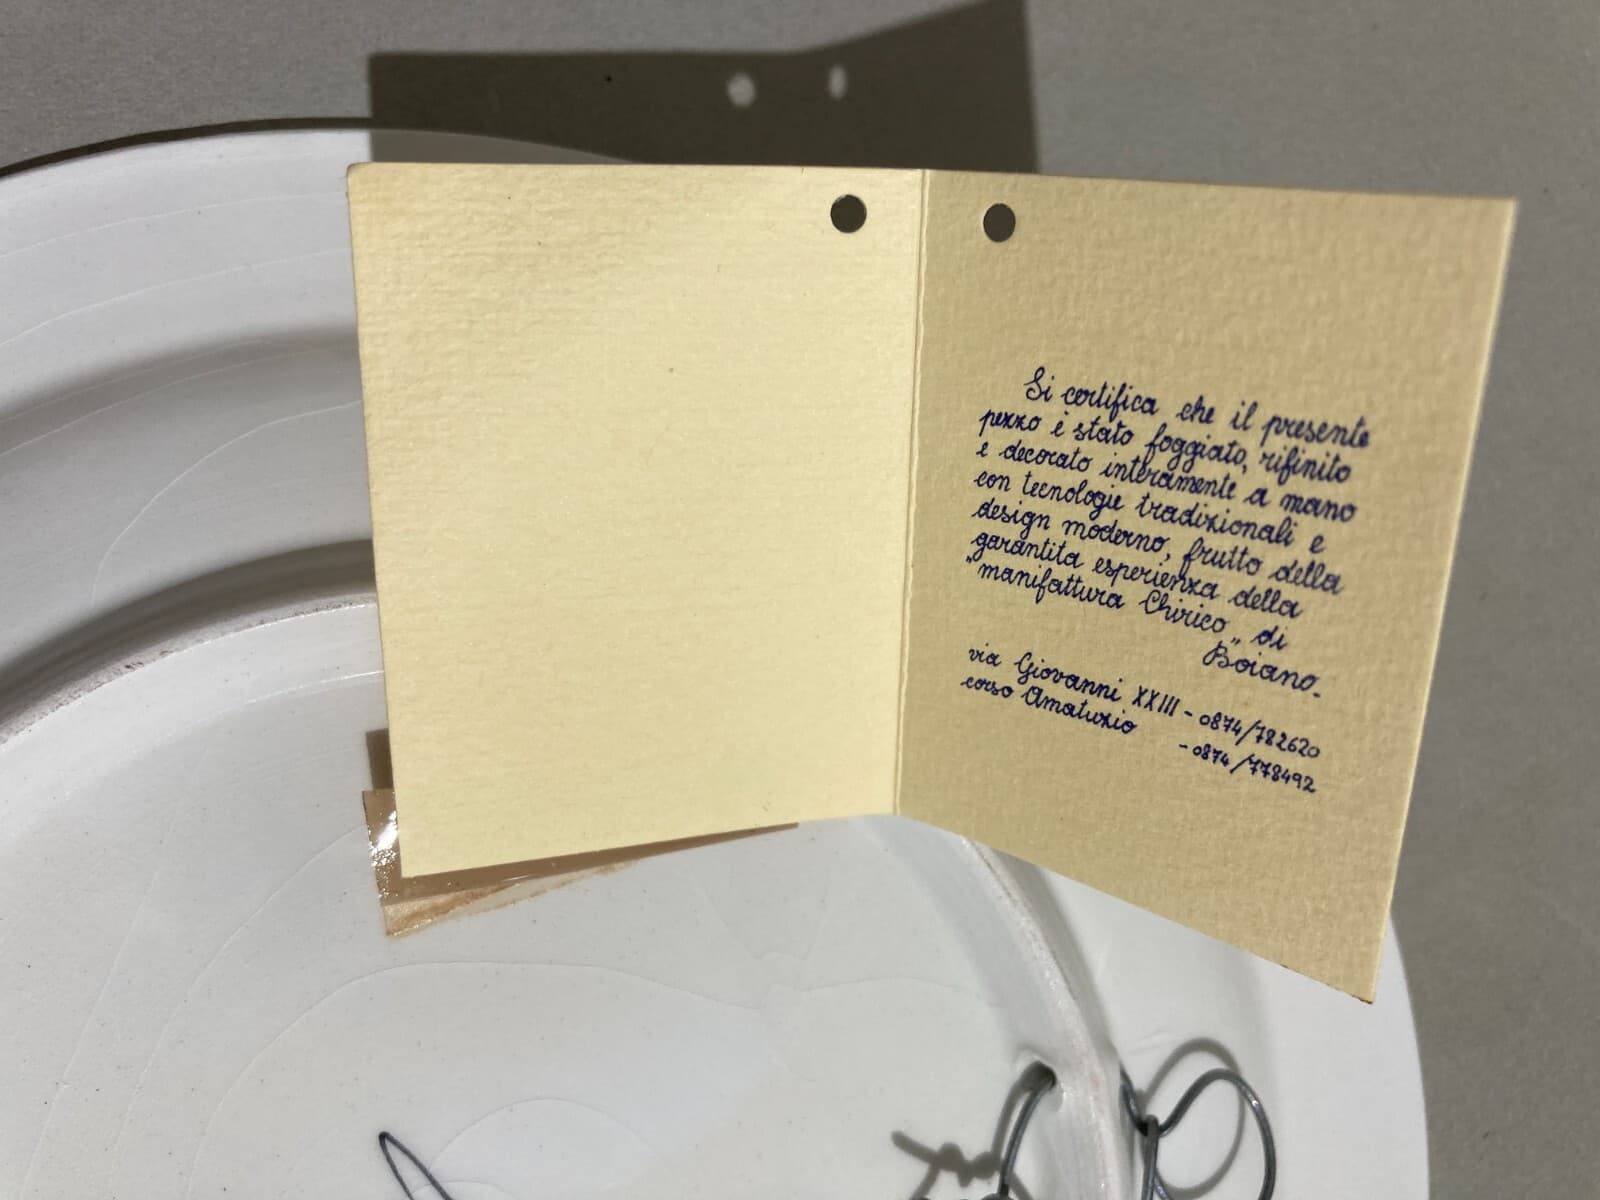 Si certifica che il presente
pezzo è stato foggiato, rifinito
e decorato interamente a mano
con tecnologie tradizionali e
design moderno, frutto della
garantita esperienza della
"manifattura Chirico" di
Boiano.
via Giovanni XXIII - 0874/782620
corso Amatuzio - 0874/778492